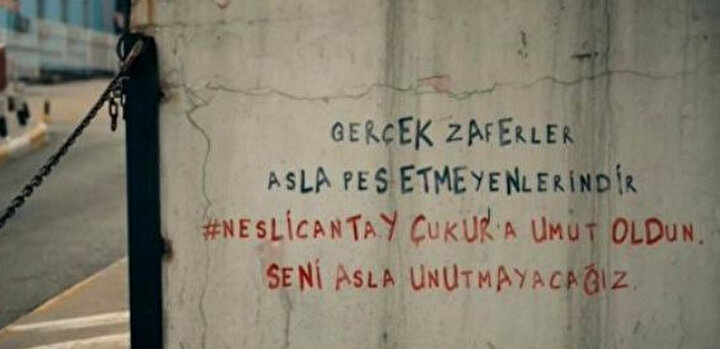 GERÇEK ZAFERLER
ASLA PES ETMEYENLERİNDİR
#NESLİCANTAY ÇUKUR'A UMUT OLDUN.
SENİ ASLA UNUTMAYACAĞIZ.